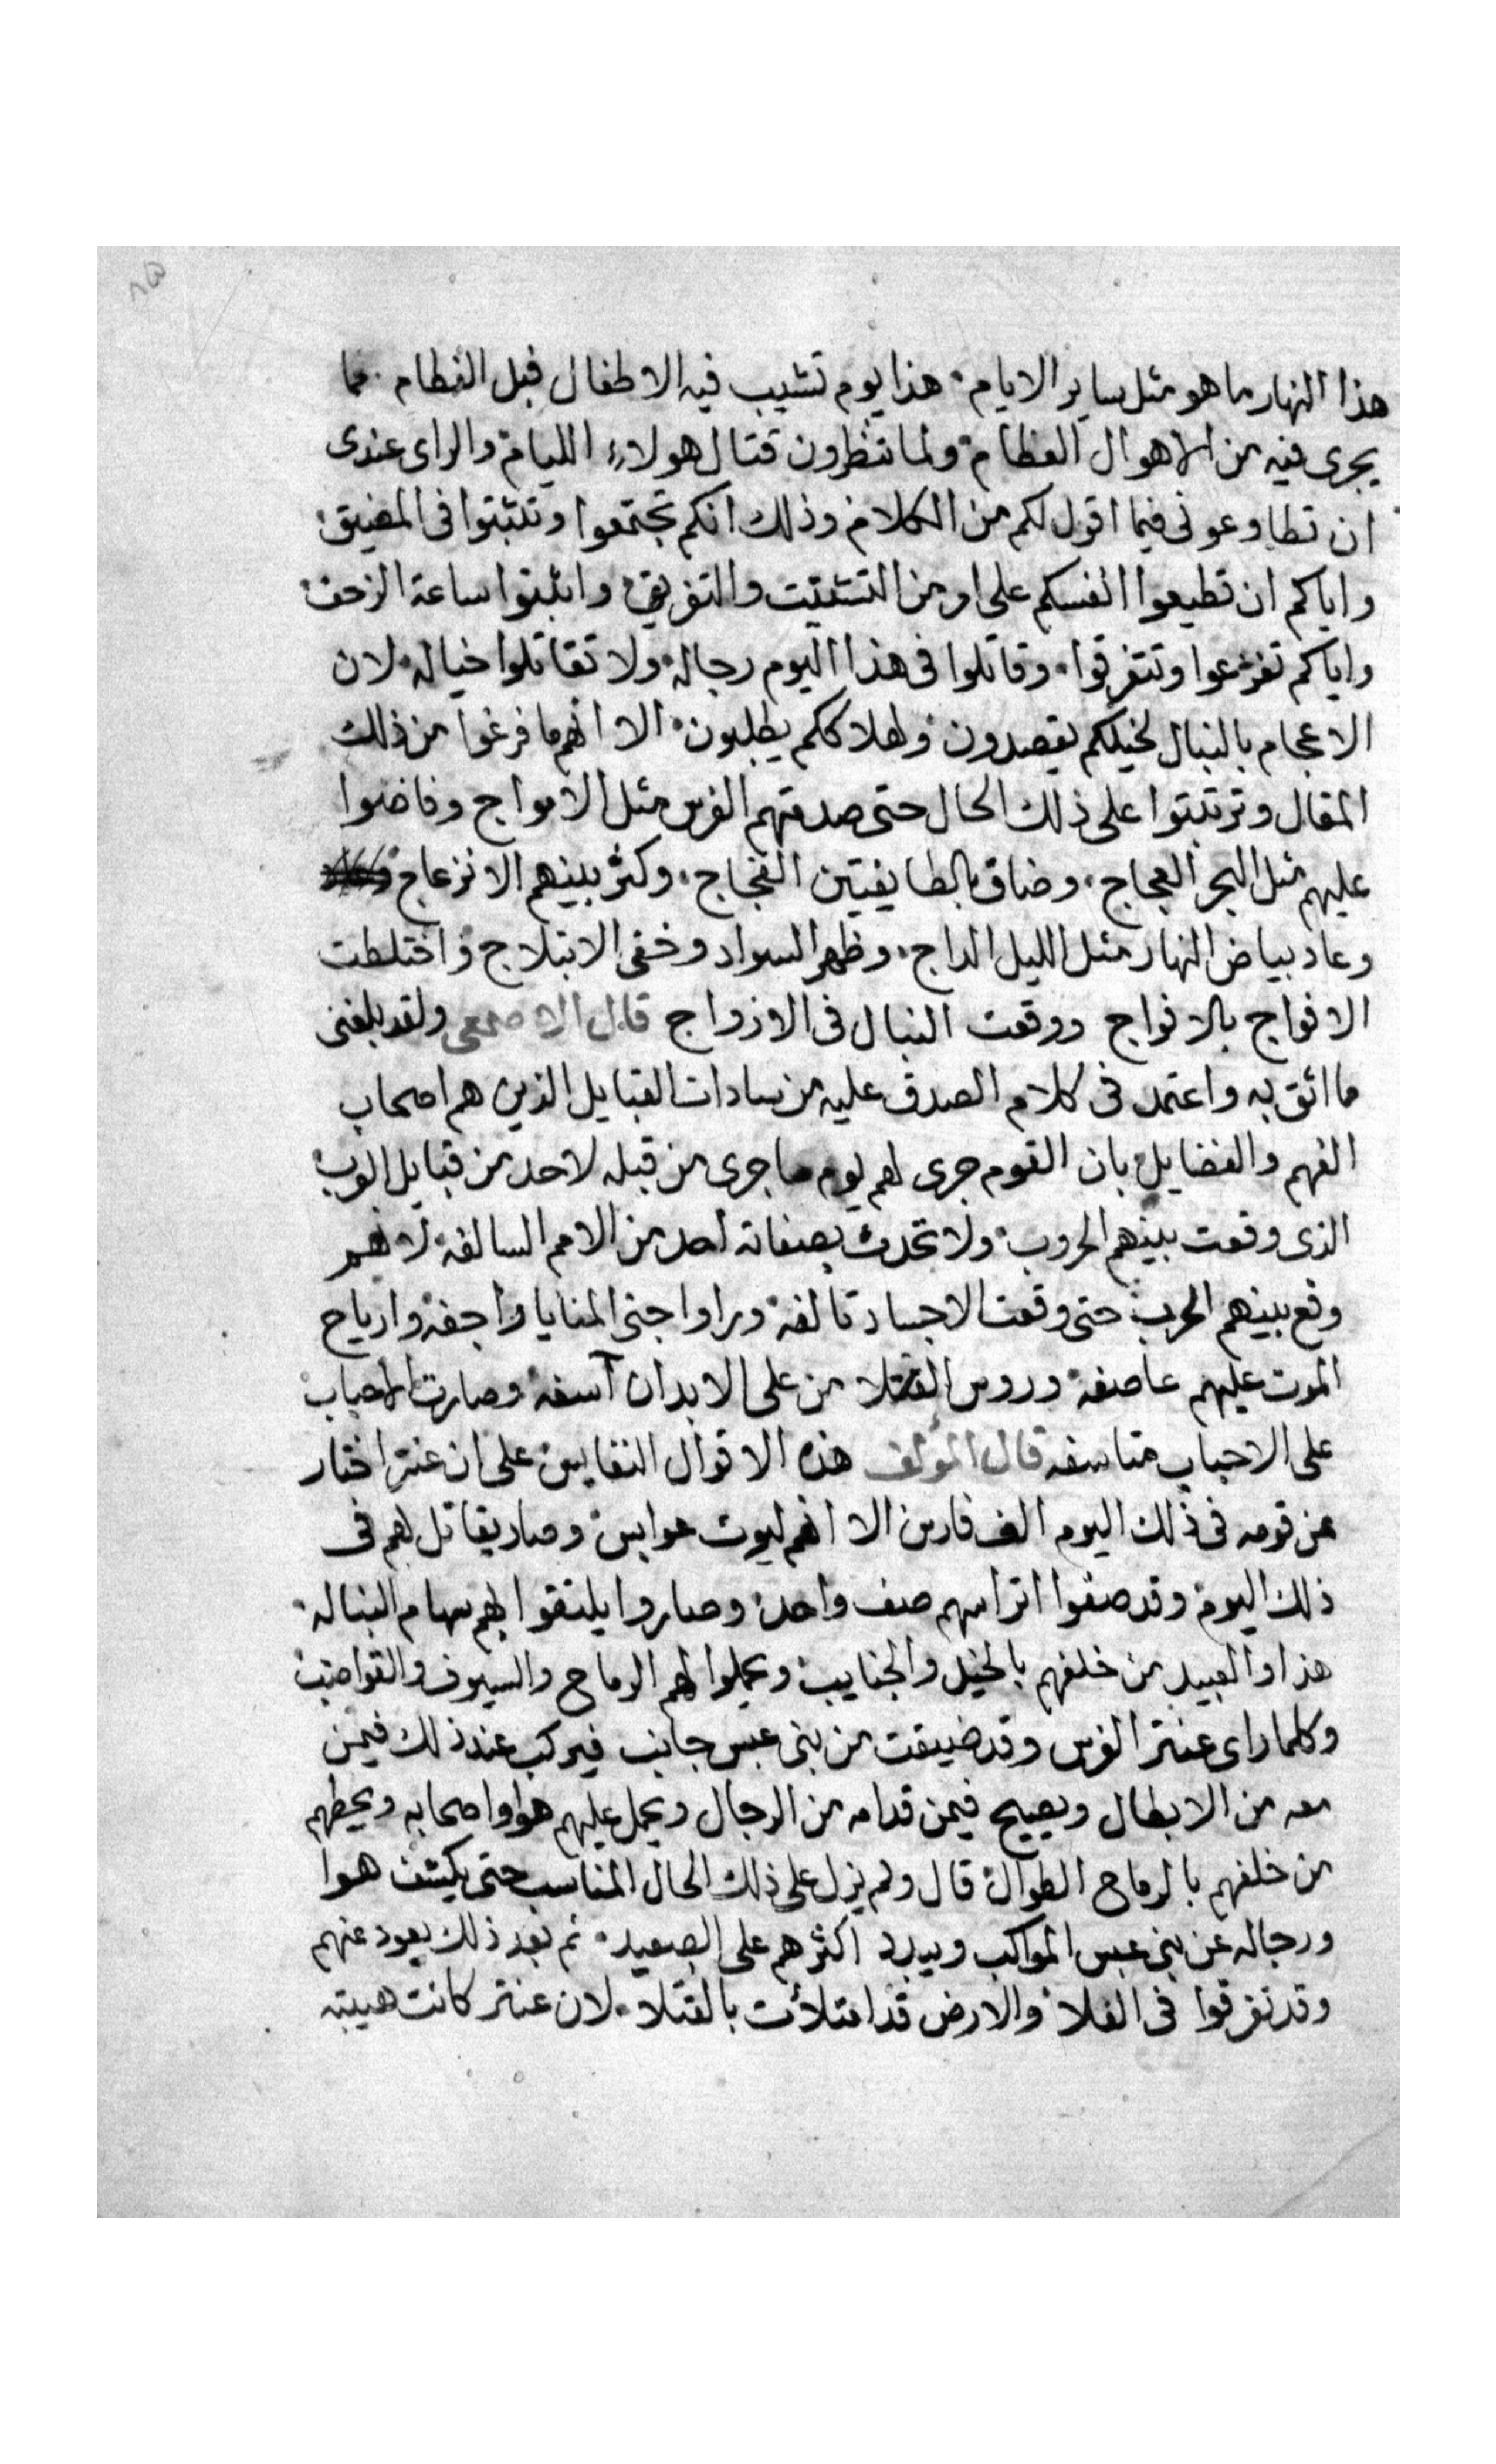 هذا النهار ما هو مثل ساير الايام٠ هذا يوم تشيب فيه الاطفال قبل الفطام٠ مما
يجرى فيه من الاهوال العظام٠ ولما تنظرون قتال هولاء الليام٠ والراى عندى
ان تطاوعونى فيما اقول لكم من الكلام٠ وذلك انكم تجتمعوا وتثبتوا فى المضيق٠
واياكم ان تطيعوا انفسكم على امر من التشتيت والتفريق٠ واثبتوا ساعة الزحف٠
واياكم تفزعوا وتتفرقوا٠ وقاتلوا فى هذا اليوم رجاله٠ ولا تقاتلوا خياله٠ لان
الاعجام بالنبال لخيلكم يقصدون٠ ولهلاككم يطلبون٠ الا انهم ما فرغوا من ذلك
المقال وترتبتوا على ذلك الحال حتى صدمتهم الفرس مثل الامواج وفاضوا
عليهم مثل البحر العجاج٠ وضاق بالطايفتين الفجاج٠ وكثر بينهم الانزعاج٠
وعاد بياض النهار مثل الليل الداج٠ وظهر السواد وخفى الابتلاج٠ واختلطت
الافواج بالافواج ووقعت النبال فى الازواج قال الاصمعى ولقد بلغنى
ما اثق به واعتمد فى كلام الصدق عليه من سادات القبايل الذين هم اصحاب
الفهم والفضايل٠ بان القوم جرى لهم يوم ما جرى من قبله لاحد من قبايل العرب٠
الذى وقعت بينهم الحروب٠ ولا تحدث بصفاته احد من الامم السالفة٠ لانهم
وقع بينهم الحرب٠ حتى وقعت الاجساد تالفة٠ وراوا جنى المنايا راجفة٠ وارياح
الموت عليهم عاصفة٠ وروس القتلا من على الابدان آسفة٠ وصارت الاحباب
على الاحباب متاسفه قال المؤلف هذه الاقوال النفايس٠ على ان عنتر اختار
من قومه فى ذلك اليوم الف فارس الا انهم ليوث عوابس٠ وصار يقاتل بهم فى
ذلك اليوم٠ وقد صفوا اتراسهم صف واحد٠ وصاروا يلتقوا بهم سهام النباله٠
هذا والعبيد من خلفهم بالخيل والجنايب٠ وحملوا لهم الرماح والسيوف والقواضب٠
وكلما راى عنتر الفرس وقد ضيقت من بنى عبس جانب فيركب عند ذلك فيمن
معه من الابطال ويصيح فيمن قدامه من الرجال ويحمل عليهم هوا واصحابه ويحطهم
من خلفهم بالرماح الطوال٠ قال ولم يزل على ذلك الحال المناسب حتى يكشف هوا
ورجاله عن بنى عبس المواكب ويبدد اكثرهم على الصعيد٠ ثم بعد ذلك يعود عنهم
وقد تفرقوا فى الفلا٠ والارض قد امتلأت بالقتلا٠ لان عنتر كانت هيبته